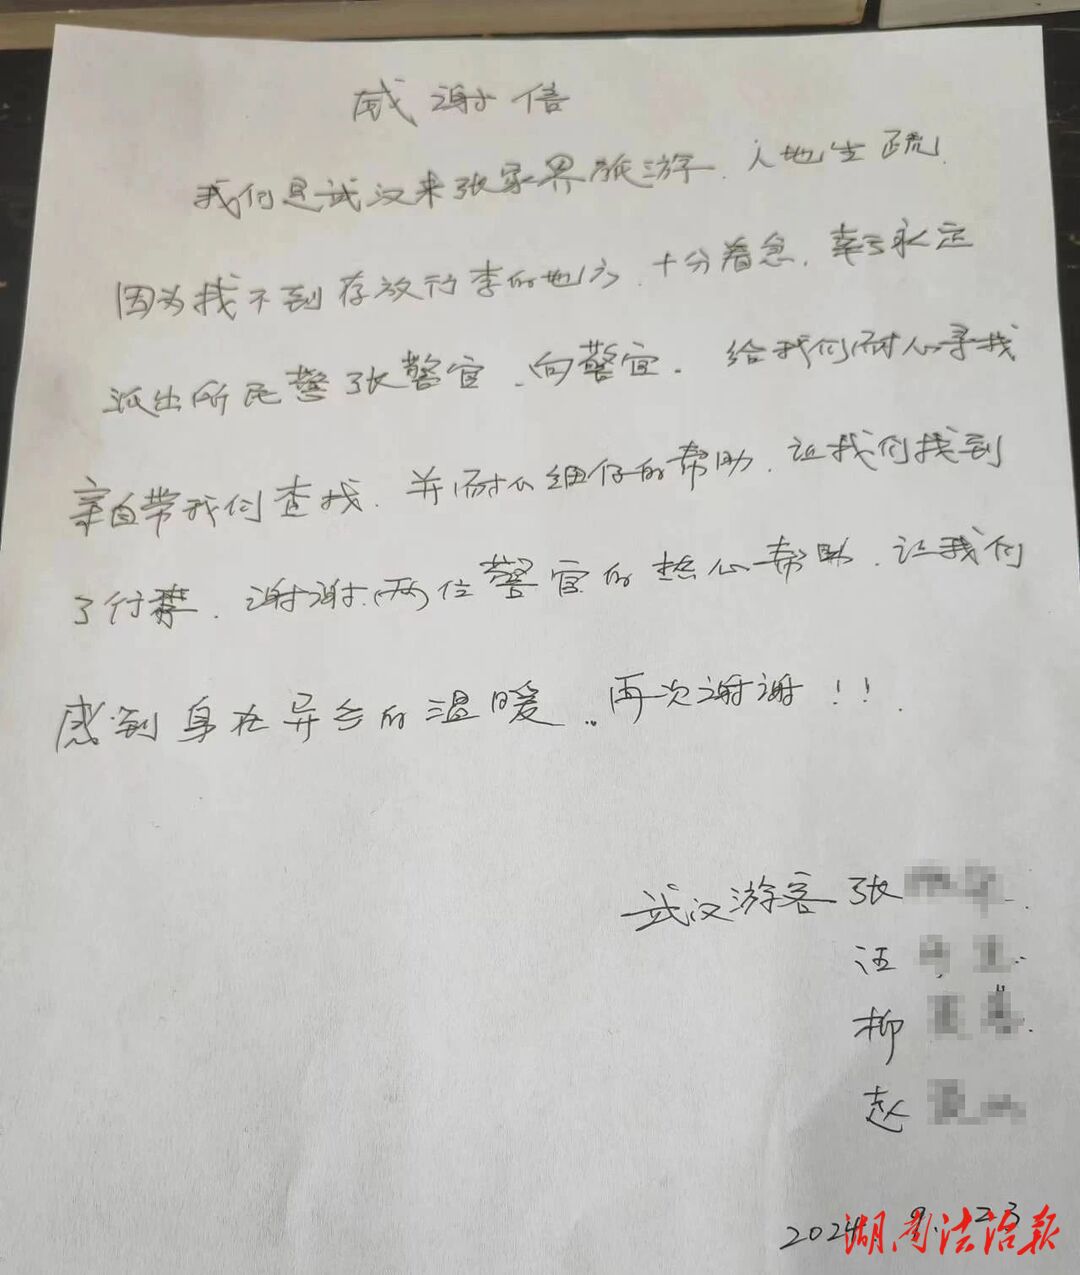 感谢信
我们是武汉来张家界旅游.人地生疏.
因为找不到存放行李的地方.十分着急.幸亏永定
派出所民警张警官.向警官.给我们耐心寻找
亲自带我们查找.并耐心细仔的帮助.让我们找到
了行李.谢谢.两位警官的热心帮助.让我们
感到身在异乡的温暖..再次谢谢!!!
武汉游客张
汪
柳
赵
2024.9.23
湖南法治报